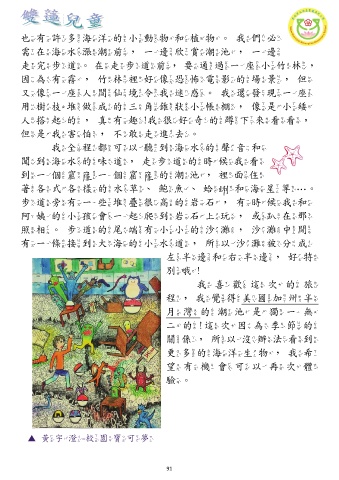 雙蓮兒童
也有許多海洋的小動物和植物。我們必
需在海水漲潮前，一邊欣賞潮池，一邊
走完步道。在走步道前，要通過一座小竹林，
因為有霧，竹林裡好像恐怖電影的場景，但
又像一座人間仙境令我迷惑。我還發現一座
用樹枝堆做成的三角錐狀小帳棚，像是小矮
人搭起的，真有趣！我很好奇的蹲下來看看，
但是我害怕，不敢走進去。
我全程都可以聽到海水的聲音和
聞到海水的味道，走步道的時候我看
到一個窟窿一個窟窿的潮池，裡面住
著各式各樣的水草、鮑魚、蛤蜊和海星等…。
步道旁有一些堆疊很高的岩石，有時候我和
阿姨的小孩會一起爬到岩石上玩，或趴在那
照相。步道的尾端有小小的沙灘，沙灘中間
有一條接到大海的小水道，所以沙灘被分成
左半邊和右半邊，好特
別哦！
我喜歡這次的旅
程，我覺得美國加州半
月灣的潮池是獨一無
二的！這次因為季節的
關係，所以沒辦法看到
更多的海洋生物，我希
望有機會可以再次體
驗。
▲ 黃宇澄—校園寶可夢
91